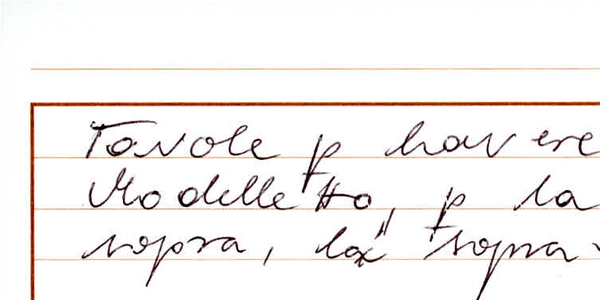 Tavole p havere
Modelletto, p la
sopra, la sopra